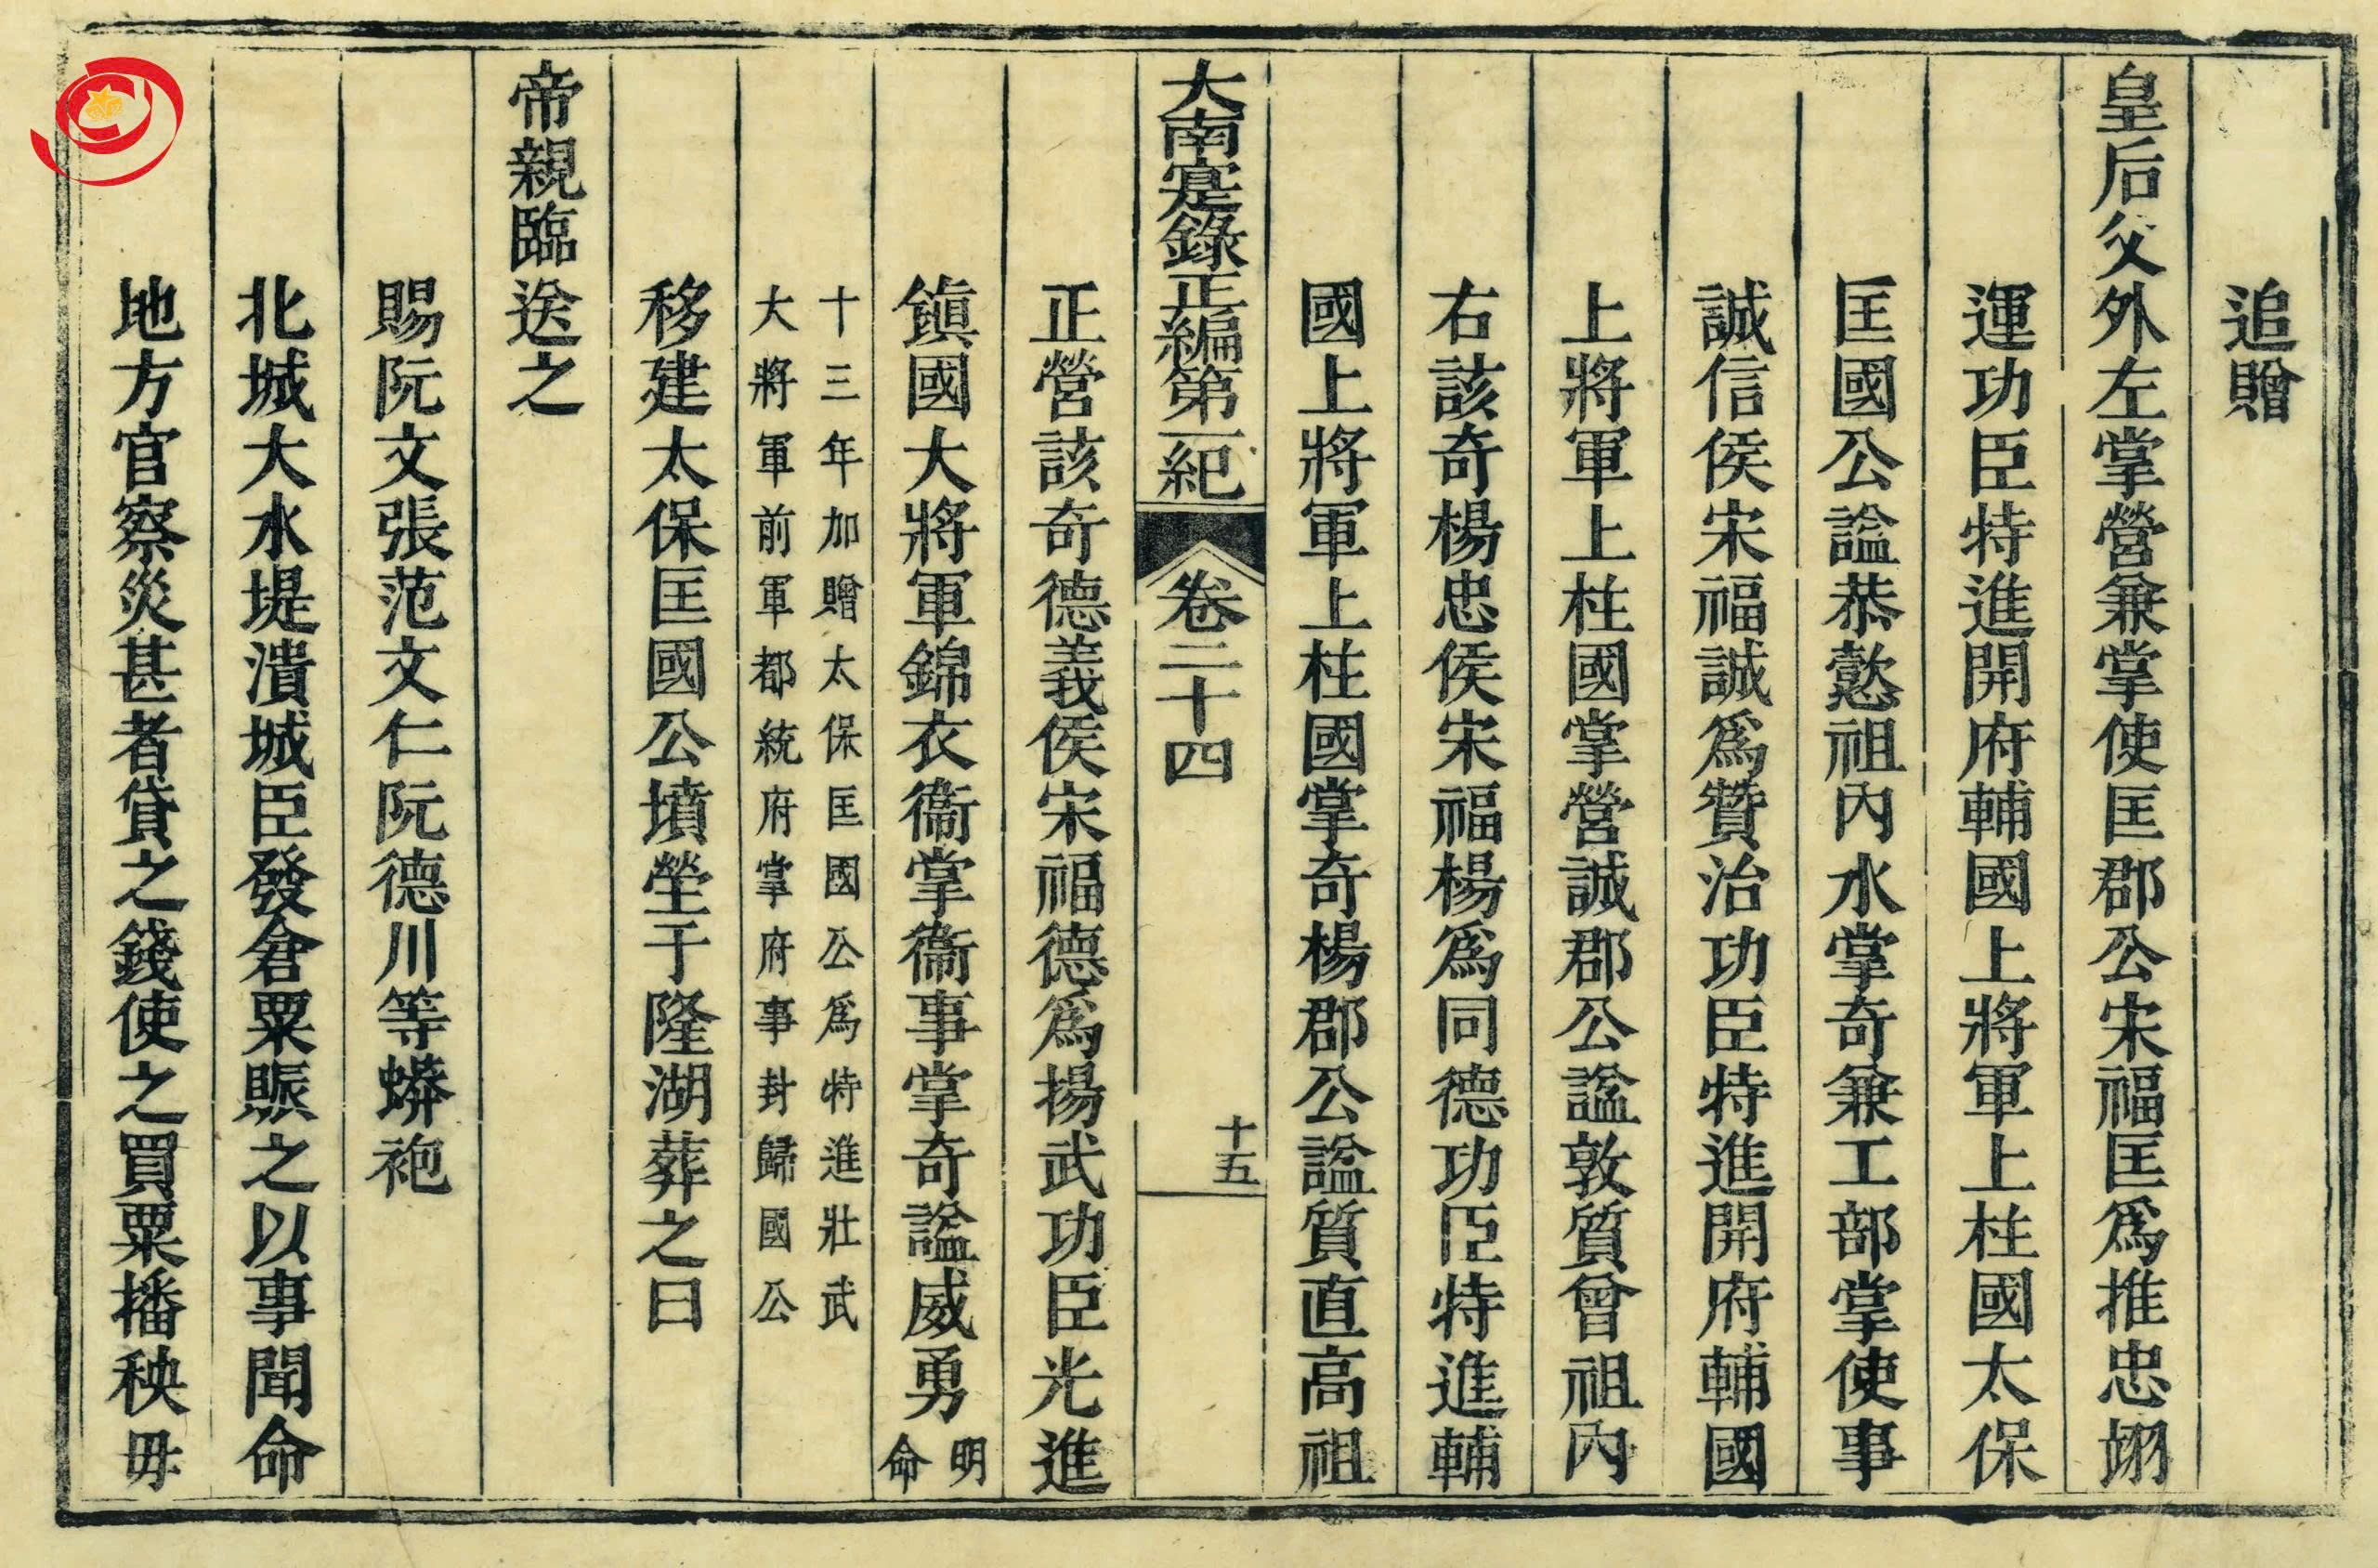 追贈
皇后父外左掌營兼掌使匡郡公宋福匡爲推忠翊
運功臣特進開府輔國上將軍上柱國太保
匡國公諡恭懿祖內水掌奇兼工部掌使事
誠信侯宋福誠爲贊治功臣特進開府輔國
上將軍上柱國掌營誠郡公諡敦質曾祖內
右該奇楊忠侯宋福楊爲同德功臣特進輔
國上將軍上柱國掌奇楊郡公諡質直高祖
大南寔錄正編第一紀 卷二十四 十五
正營該奇德義侯宋福德爲揚武功臣光進
鎮國大將軍錦衣衞掌衞事掌奇諡威勇明命
十三年加贈太保匡國公爲特進壯武
大將軍前軍都統府掌府事封歸國公
移建太保匡國公墳塋于隆湖葬之日
帝親臨送之
賜阮文張范文仁阮德川等蟒袍
北城大水堤潰城臣發倉粟賑之以事聞命
地方官察災甚者貸之錢使之買粟播秧毋